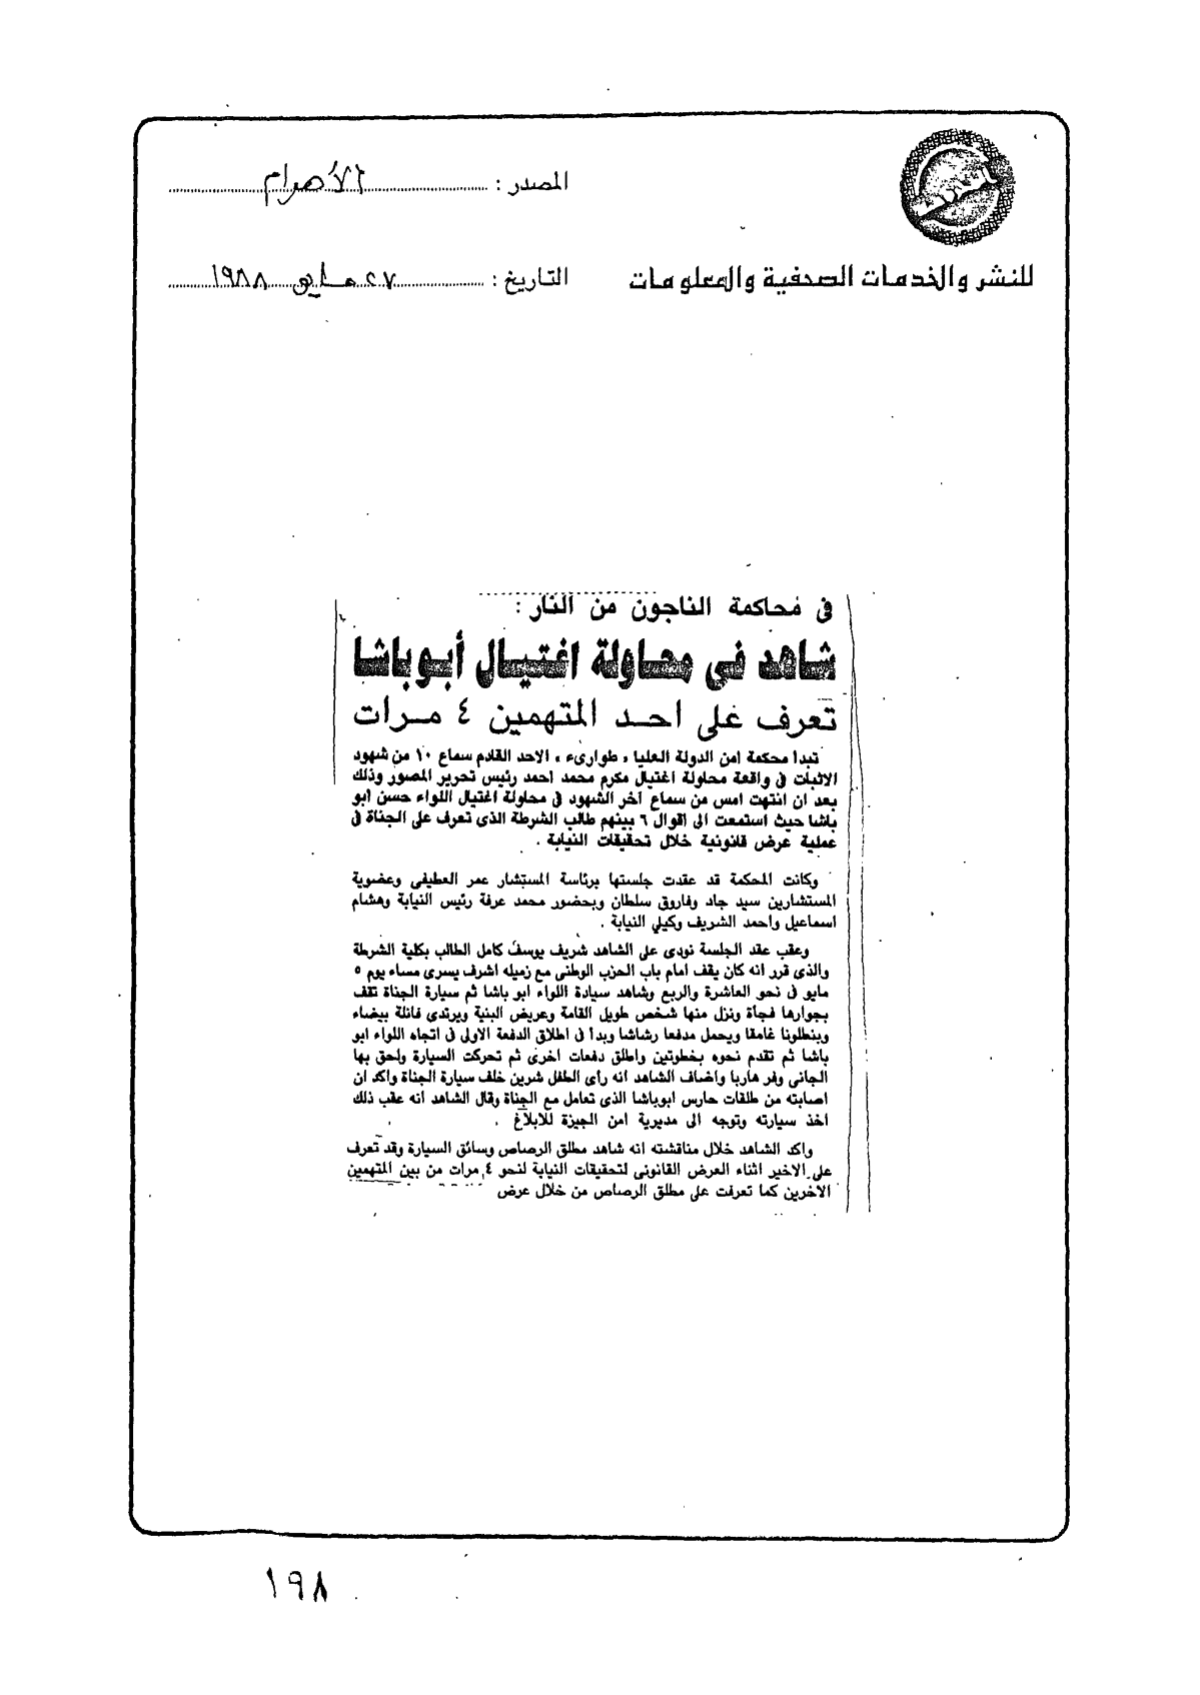 المصدر : الأهرام
للنشر والخدمات الصحفية والمعلومات
التاريخ : ٢٧ مايو ١٩٨٨
فى محاكمة الناجون من النار :
شاهد فى محاولة اغتيال أبو باشا
تعرف على احد المتهمين ٤ مرات
تبدأ محكمة امن الدولة العليا « طوارىء » الاحد القادم سماع ١٠ من شهود
الاثبات فى واقعة محاولة اغتيال مكرم محمد احمد رئيس تحرير المصور وذلك
بعد ان انتهت امس من سماع آخر الشهود فى محاولة اغتيال اللواء حسن ابو
باشا حيث استمعت الى اقوال ٦ بينهم طالب الشرطة الذى تعرف على الجناة فى
عملية عرض قانونية خلال تحقيقات النيابة .
وكانت المحكمة قد عقدت جلستها برئاسة المستشار عمر العطيفى وعضوية
المستشارين سيد جاد وفاروق سلطان وبحضور محمد عرفة رئيس النيابة وهشام
اسماعيل واحمد الشريف وكيلى النيابة .
وعقب عقد الجلسة نودى على الشاهد شريف يوسف كامل الطالب بكلية الشرطة
والذى قرر انه كان يقف امام باب الحزب الوطنى مع زميله اشرف يسرى مساء يوم ٥
مايو فى نحو العاشرة والربع وشاهد سيادة اللواء ابو باشا ثم سيارة الجناة تقف
بجوارها فجأة ونزل منها شخص طويل القامة وعريض البنية ويرتدى فانلة بيضاء
وبنطلونا غامقا ويحمل مدفعا رشاشا وبدأ فى اطلاق الدفعة الاولى فى اتجاه اللواء ابو
باشا ثم تقدم نحوه بخطوتين واطلق دفعات اخرى ثم تحركت السيارة ولحق بها
الجانى وفر هاربا واضاف الشاهد انه رأى الطفل شرين خلف سيارة الجناة واكد ان
اصابته من طلقات حارس ابوباشا الذى تعامل مع الجناة وقال الشاهد انه عقب ذلك
اخذ سيارته وتوجه الى مديرية امن الجيزة للابلاغ .
واكد الشاهد خلال مناقشته انه شاهد مطلق الرصاص وسائق السيارة وقد تعرف
على الاخير اثناء العرض القانونى لتحقيقات النيابة لنحو ٤ مرات من بين المتهمين
الآخرين كما تعرفت على مطلق الرصاص من خلال عرض
١٩٨